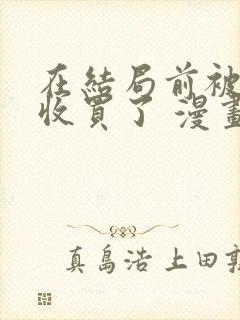 在結局前被
收買了 漫畫
真島浩 上田敦